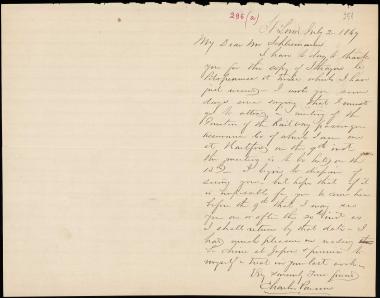 286(2)
251
St Louis July 2. 1869
My Dear Mr Schliemann
I have to day to thank
you for the copy of Ithaque le
Péloponnèse et Troie which I have
just received I wrote you some
days since saying that I must
go to attend a meeting of the
of the Railway passenger
of which I am
at Hartford on the 9th inst
the meeting is to be held on the
I begin to despair of
seeing you but hope that if it
is impossible for you to come here
before the 9th that I may see
you on or after the 20th inst as
I shall return by that date - I
had much pleasure in reading
La Chine et Japon &
myself & trust in your last work -
Very sincerely Your friend
Charles Parsons